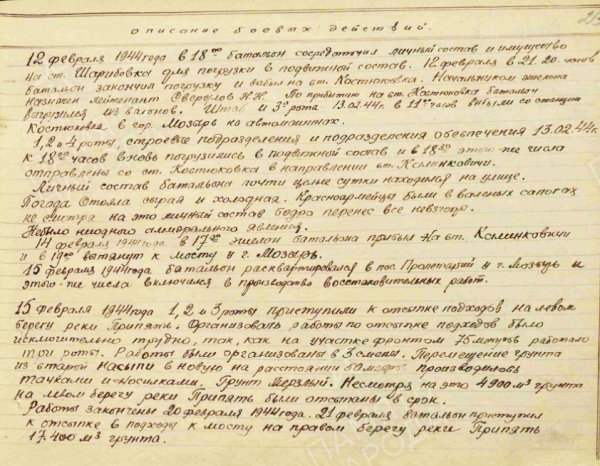 описание боевых действий.
12 февраля 1944 года в 18°° батальон сосредоточил личный состав и имущество
на ст. Шариловка для погрузки в подвижной состав. 12 февраля в 21.20 часов
батальон закончил погрузку и выбыл на ст. Костюковка. Начальником эшелона
назначен лейтенант Н.Н. По прибытию на ст. Костюковка батальон
выгрузился из вагонов. Штаб и 3я рота 13.02.44г. в 11°° часов выбыли со станции
Костюковка в гор. Мозырь на автомашинах.
1, 2 и 4 роты, строевые подразделения и подразделения обеспечения 13.02.44г.
к 18°° часов вновь погрузились в подвижной состав и в 18³⁰ этого-же числа
отправлены со ст. Костюковка в направлении ст. Ксминковичи.
Личный состав батальона почти целые сутки находился на улице.
Погода стояла сырая и холодная. Красноармейцы были в валеных сапогах
не смотря на это личный состав бодро перенес все невзгоды.
Небыло ниодного аморального явления.
14 февраля 1944 года в 17°° эшелон батальона прибыл на ст. Ксминковичи
и в 19°° вытянут к мосту у г. Мозырь.
15 февраля 1944 года батальон расквартировался в пос. Пролетарий у г. Мозырь и
этого-же числа включился в производство восстановительных работ.
15 февраля 1944 года 1, 2 и 3 роты приступили к отсыпке подходов на левом
берегу реки Припять. Организовать работы по отсыпке подходов было
исключительно трудно, так, как на участке фронтом 75 метров работало
три роты. Работы были организованы в 3 смены. Перемещение грунта
из старой насыпи в новую на расстоянии 50 метр. производилось
тачками и носилками. Грунт мерзлый. Несмотря на это 4900 м³ грунта
на левом берегу реки Припять были отсыпаны в срок.
Работы закончены 20 февраля 1944 года. 21 февраля батальон приступил
к отсыпке в подходы к мосту на правом берегу реки Припять
17400 м³ грунта.